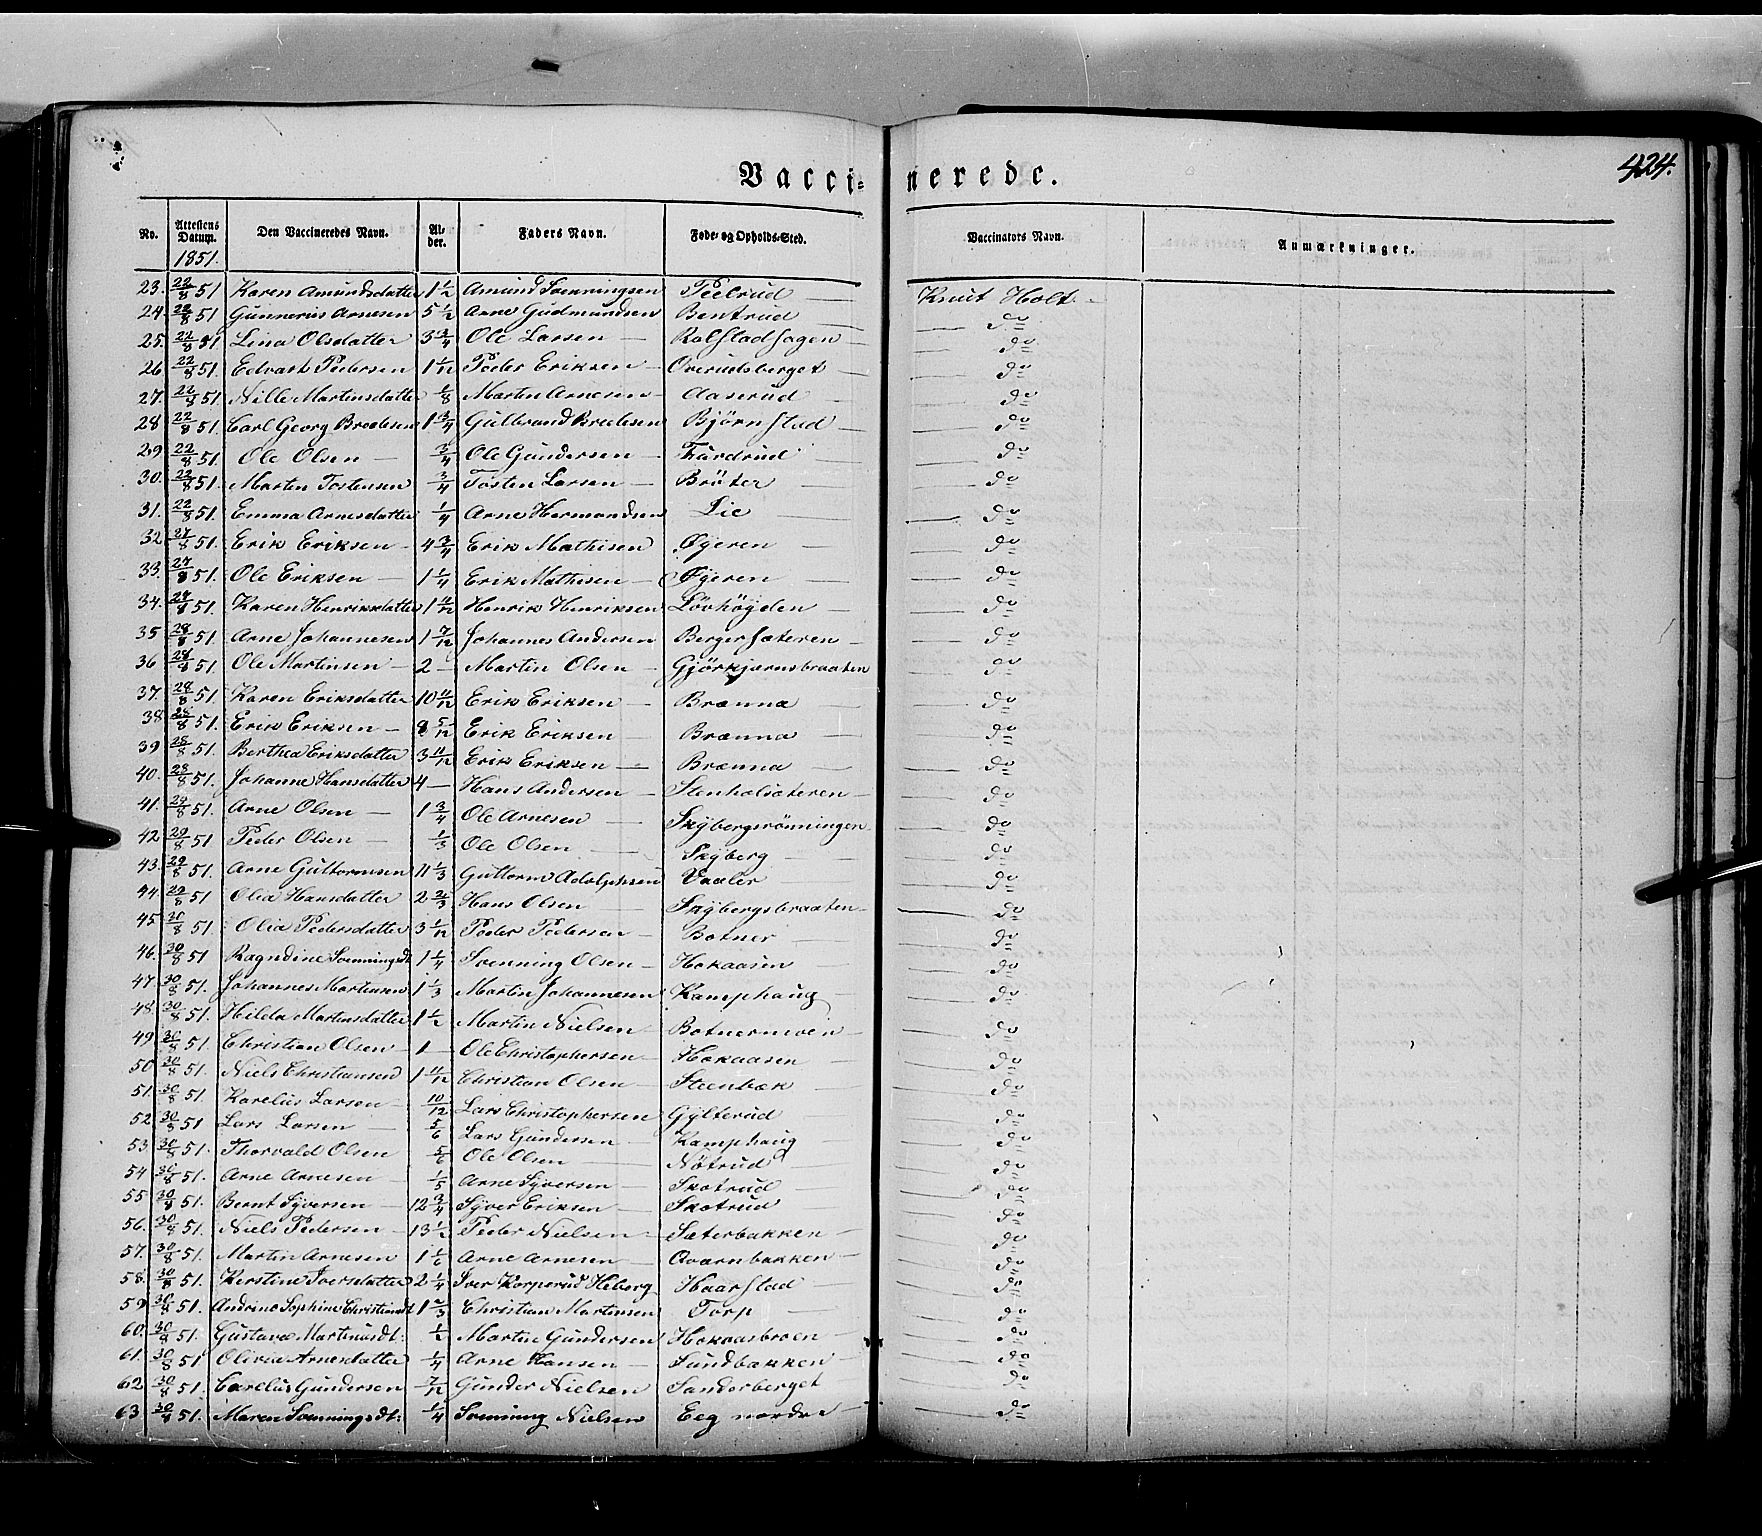 Vacci- nerede. 424.
No. Attestens Datum. 1851. Den Vaccineredes Navn. Al- der. Faders Navn. Føde- og Opholds-Sted. Vaccinators Navn. Anmærkninger.
23. 22/8 51 Karen Amundsdatter 1 1/2 Amund Svenningsen Peelrud — Knut Holt. -
24. 22/8 51 Gunnerius Arnesen 5 1/2 Arne Gudmundsen Bentrud — do
25. 22/8 51 Lina Olsdatter 3 3/4 Ole Larsen — Rolfstadhagen — do
26 22/8 51. Edvart Pedersen 1 1/12 Peder Eriksen — Overudsberget — do
27. 22/8 51. Nille Martensdatter 1/8 Marten Arnesen — Aaserud — do
28 22/8 51. Carl Georg Bredesen 1 3/4 Gulbrand Bredesen Bjørnstad — do
29 22/8 51. Ole Olsen — 3/4 Ole Gundersen — Furdrud — do
30. 22/8 51. Marten Tostensen 3/4 Tosten Larsen — Bröter — do
31. 22/8 51. Emma Arnesdatter 1/4 Arne Hermandsen Lie — do
32 27/8 51. Erik Eriksen - 4 3/4 Erik Mathisen Øyeren — do
33. 27/8 51. Ole Eriksen — 1 1/4 Erik Mathisen — Øyeren — do
34. 27/8 51. Karen Henriksdatter 1 11/12 Henrik Henriksen Lövhögden — do
35 28/8 51 Arne Johannesen 1 7/12 Johannes Andersen Bergersæteren — do
36 28/8 51 Ole Martinsen — 2 — Martin Olsen — Gjörkjærnsbraaten do
37. 28/8 51 Karen Eriksdatter 10 11/12 Erik Eriksen — Brænna — do
38 28/8 51. Erik Eriksen — 8 5/12 Erik Eriksen — Brænna — do
39 28/8 51. Berthe Eriksdatter 3 11/12 Erik Eriksen — Brænna — do
40. 28/8 51. Johanne Hansdatter 4 — Hans Andersen — Stenholsæteren — do
41. 29/8 51. Arne Olsen — 1 3/4 Ole Arnesen — Skÿbergsrönningen do
42. 29/8 51 Peder Olsen — 1/3 Ole Olsen — Skÿberg — do
43. 29/8 51. Arne Guttormsen 11 1/3 Guttorm Adolphsen Vaaler — do
44. 29/8 51 Olia Hansdatter 2 2/3 Hans Olsen — Skÿbergsbraaten — do
45 30/8 51. Olia Pedersdatter 3 1/12 Peder Pedersen — Botner — do
46. 30/8 51 Ragndine Svenningsdt 1 1/4 Svenning Olsen — Hokaasen — do
47 30/8 51. Johannes Martinsen 1 1/3 Martin Johannesen Kamphaug do
48. 30/8 51. Hilda Martinsdatter 1 1/2 Martin Nielsen — Botnermoen — do
49 30/8 51. Christian Olsen — 1 — Ole Christophersen — Hokaasen — do
50 30/8 51. Niels Christiansen 1 11/12 Christian Olsen — Steenbæk — do
51. 30/8 51. Karelius Larsen — 10/12 Lars Christophersen Gÿlterud — do
52 30/8 51 Lars Larsen — 5/6 Lars Gundersen — Kamphaug — do
53 30/8 51. Thorvald Olsen 5/6 Ole Olsen — Nötrud — do
54 30/8 51. Arne Arnesen — 1/5 Arne Sÿversen — Skotrud — do
55 30/8 51. Bernt Sÿversen — 12 3/4 Sÿver Eriksen — Skotrud — do
56. 30/8 51. Niels Pedersen — 13 1/2 Peder Nielsen — Sæterbakken — do
57. 30/8 51. Martin Arnesen 1 1/6 Arne Arnesen — Qvarnbakken — do
58. 30/8 51. Kerstine Iversdatter 2 1/4 Iver Korperud Hiberg Haarstad — do
59 30/8 51. Andrine Sophine Christiandt 1 2/3 Christian Martinsen Torp — do
60. 30/8 51. Gustava Martinusdt: 1/2 Martin Gundersen Hokaasbroen — do
61. 30/8 51 Olivia Arnesdatter 1/4 Arne Hansen — Sundbakken — do
62 30/8 51. Carelius Gundersen 7/12 Gunder Nielsen Sanderberget do
63 30/8 51. Maren Svenningsdt: 1/4 Svenning Nielsen Eeg nordre — do